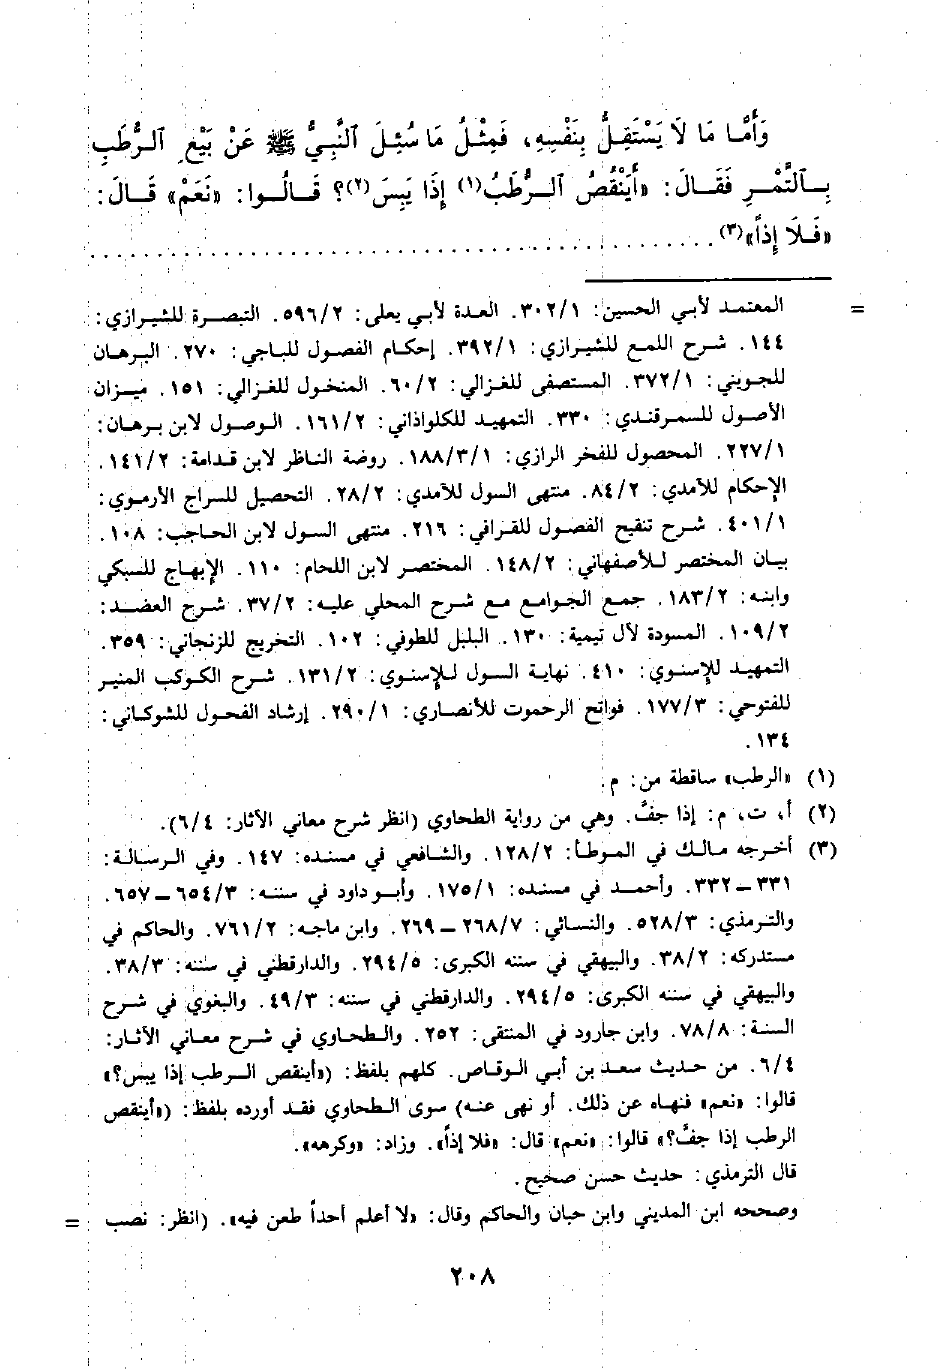 وَأَمَّا مَا لَا يَسْتَقِلُّ بِنَفْسِهِ، فَمِثْلُ مَا سُئِلَ النَّبِيُّ ﷺ عَنْ بَيْعِ الرُّطَبِ
بِالتَّمْرِ فَقَالَ: «أَيَنْقُصُ الرُّطَبُ(١) إِذَا يَبِسَ(٢)؟ قَالُوا: «نَعَمْ» قَالَ:
«فَلَا إِذاً»(٣). . . . . . . . . . . . . . . . . . . . . . . . . . . . . . . . . . . . . . .
= المعتمد لأبي الحسين: ٣٠٢/١. العدة لأبي يعلى: ٥٩٦/٢. التبصرة للشيرازي:
١٤٤. شرح اللمع للشيرازي: ٣٩٢/١. إحكام الفصول للباجي: ٢٧٠. البرهان
للجويني: ٣٧٢/١. المستصفى للغزالي: ٦٠/٢. المنخول للغزالي: ١٥١. ميزان
الأصول للسمرقندي: ٣٣٠. التمهيد للكلواذاني: ١٦١/٢. الوصول لابن برهان:
٢٢٧/١. المحصول للفخر الرازي: ١٨٨/٣/١. روضة الناظر لابن قدامة: ١٤١/٢.
الإحكام للآمدي: ٨٤/٢. منتهى السول للآمدي: ٢٨/٢. التحصيل للسراج الأرموي:
٤٠١/١. شرح تنقيح الفصول للقرافي: ٢١٦. منتهى السول لابن الحاجب: ١٠٨.
بيان المختصر للأصفهاني: ١٤٨/٢. المختصر لابن اللحام: ١١٠. الإبهاج للسبكي
وابنه: ١٨٣/٢. جمع الجوامع مع شرح المحلي عليه: ٣٧/٢. شرح العضد:
١٠٩/٢. المسودة لآل تيمية: ١٣٠. البلبل للطوفي: ١٠٢. التخريج للزنجاني: ٣٥٩.
التمهيد للإسنوي: ٤١٠. نهاية السول للإسنوي: ١٣١/٢. شرح الكوكب المنير
للفتوحي: ١٧٧/٣. فواتح الرحموت للأنصاري: ٢٩٠/١. إرشاد الفحول للشوكاني:
١٣٤.
(١) «الرطب» ساقطة من: م.
(٢) أ، ت، م: إذا جفَّ. وهي من رواية الطحاوي (انظر شرح معاني الآثار: ٦/٤).
(٣) أخرجه مالك في الموطأ: ١٢٨/٢. والشافعي في مسنده: ١٤٧. وفي الرسالة:
٣٣١ – ٣٣٢. وأحمد في مسنده: ١٧٥/١. وأبو داود في سننه: ٦٥٤/٣ – ٦٥٧.
والترمذي: ٥٢٨/٣. والنسائي: ٢٦٨/٧ – ٢٦٩. وابن ماجه: ٧٦١/٢. والحاكم في
مستدركه: ٣٨/٢. والبيهقي في سننه الكبرى: ٢٩٤/٥. والدارقطني في سننه: ٣٨/٣.
والبيهقي في سننه الكبرى: ٢٩٤/٥. والدارقطني في سننه: ٤٩/٣. والبغوي في شرح
السنة: ٧٨/٨. وابن جارود في المنتقى: ٢٥٢. والطحاوي في شرح معاني الآثار:
٦/٤. من حديث سعد بن أبي الوقاص. كلهم بلفظ: («أينقص الرطب إذا يبس؟»
قالوا: «نعم» فنهاه عن ذلك. أو نهى عنه) سوى الطحاوي فقد أورده بلفظ: («أينقص
الرطب إذا جفَّ؟» قالوا: «نعم» قال: «فلا إذاً». وزاد: «وكرهه».
قال الترمذي: حديث حسن صحيح.
وصححه ابن المديني وابن حبان والحاكم وقال: «لا أعلم أحداً طعن فيه». (انظر: نصب =
٢٠٨